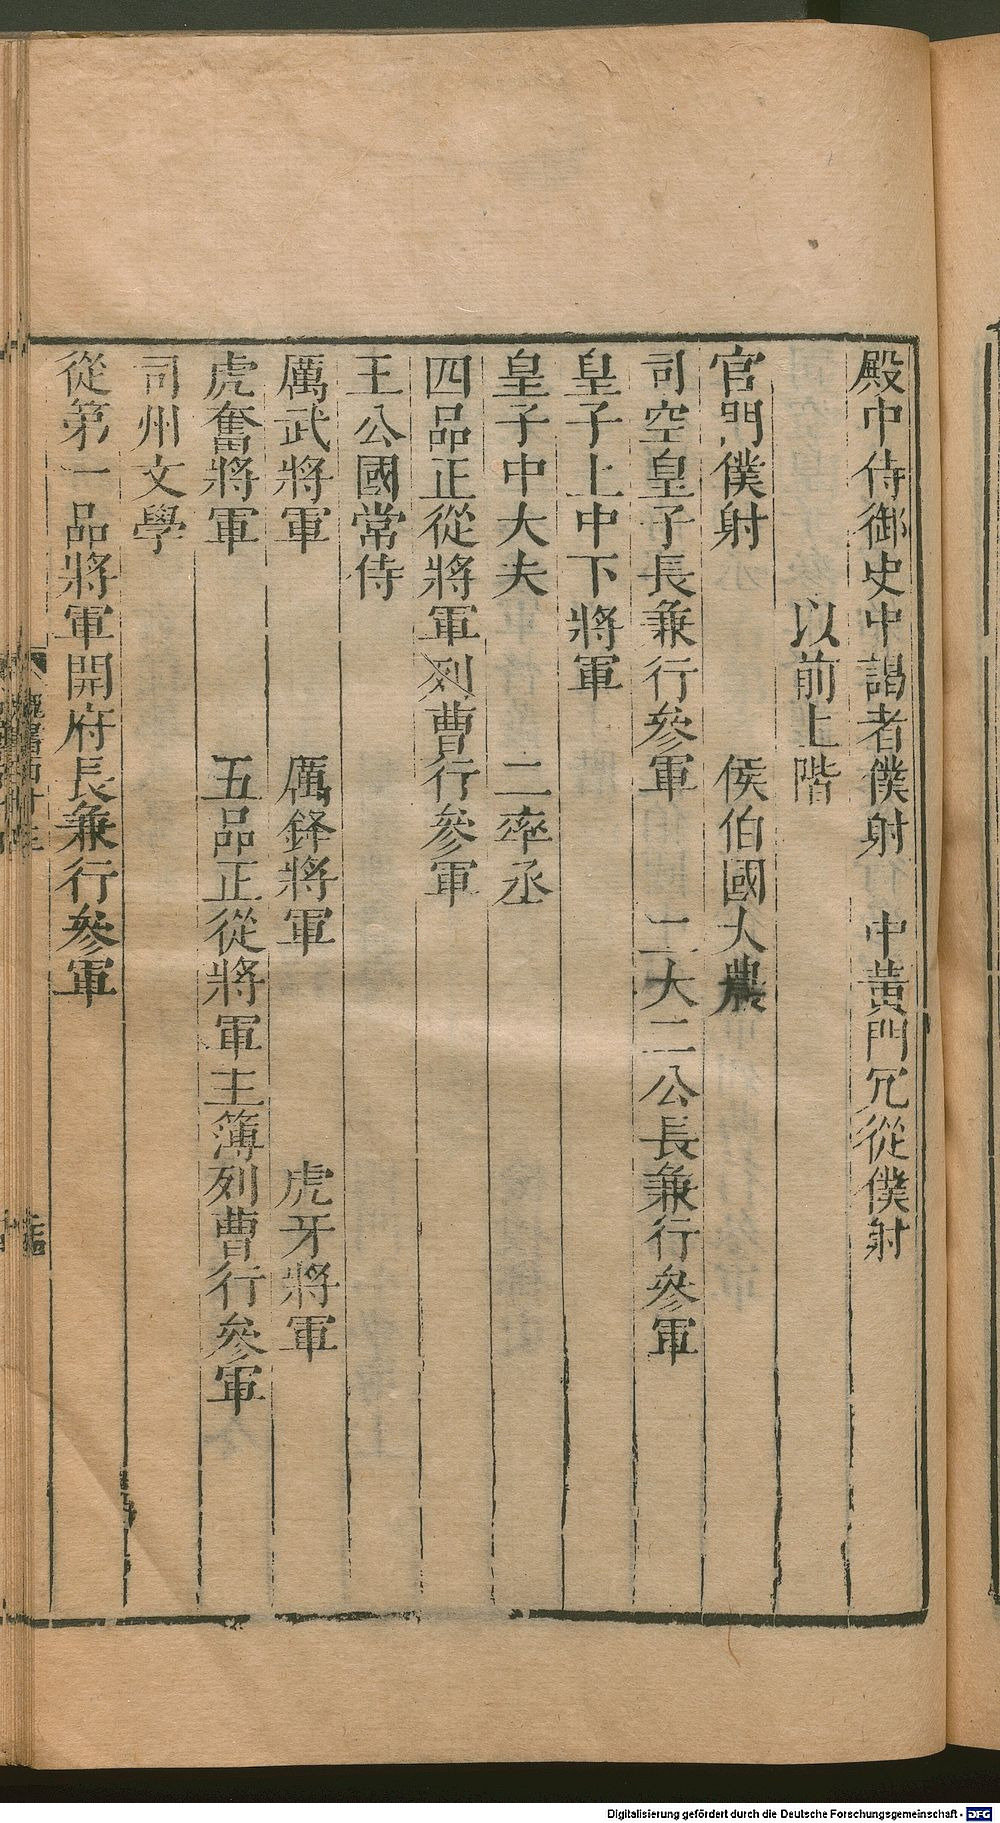 殿中侍御史中謁者僕射　中黃門冗從僕射
以前上階
官門僕射　侯伯國大農
司空皇子長兼行參軍　二大二公長兼行參軍
皇子上中下將軍
皇子中大夫　二率丞
四品正從將軍列曹行參軍
王公國常侍
厲武將軍　厲鋒將軍　虎牙將軍
虎奮將軍　五品正從將軍主簿列曹行參軍
司州文學
從第一品將軍開府長兼行參軍
Digitalisierung gefördert durch die Deutsche Forschungsgemeinschaft - DFG